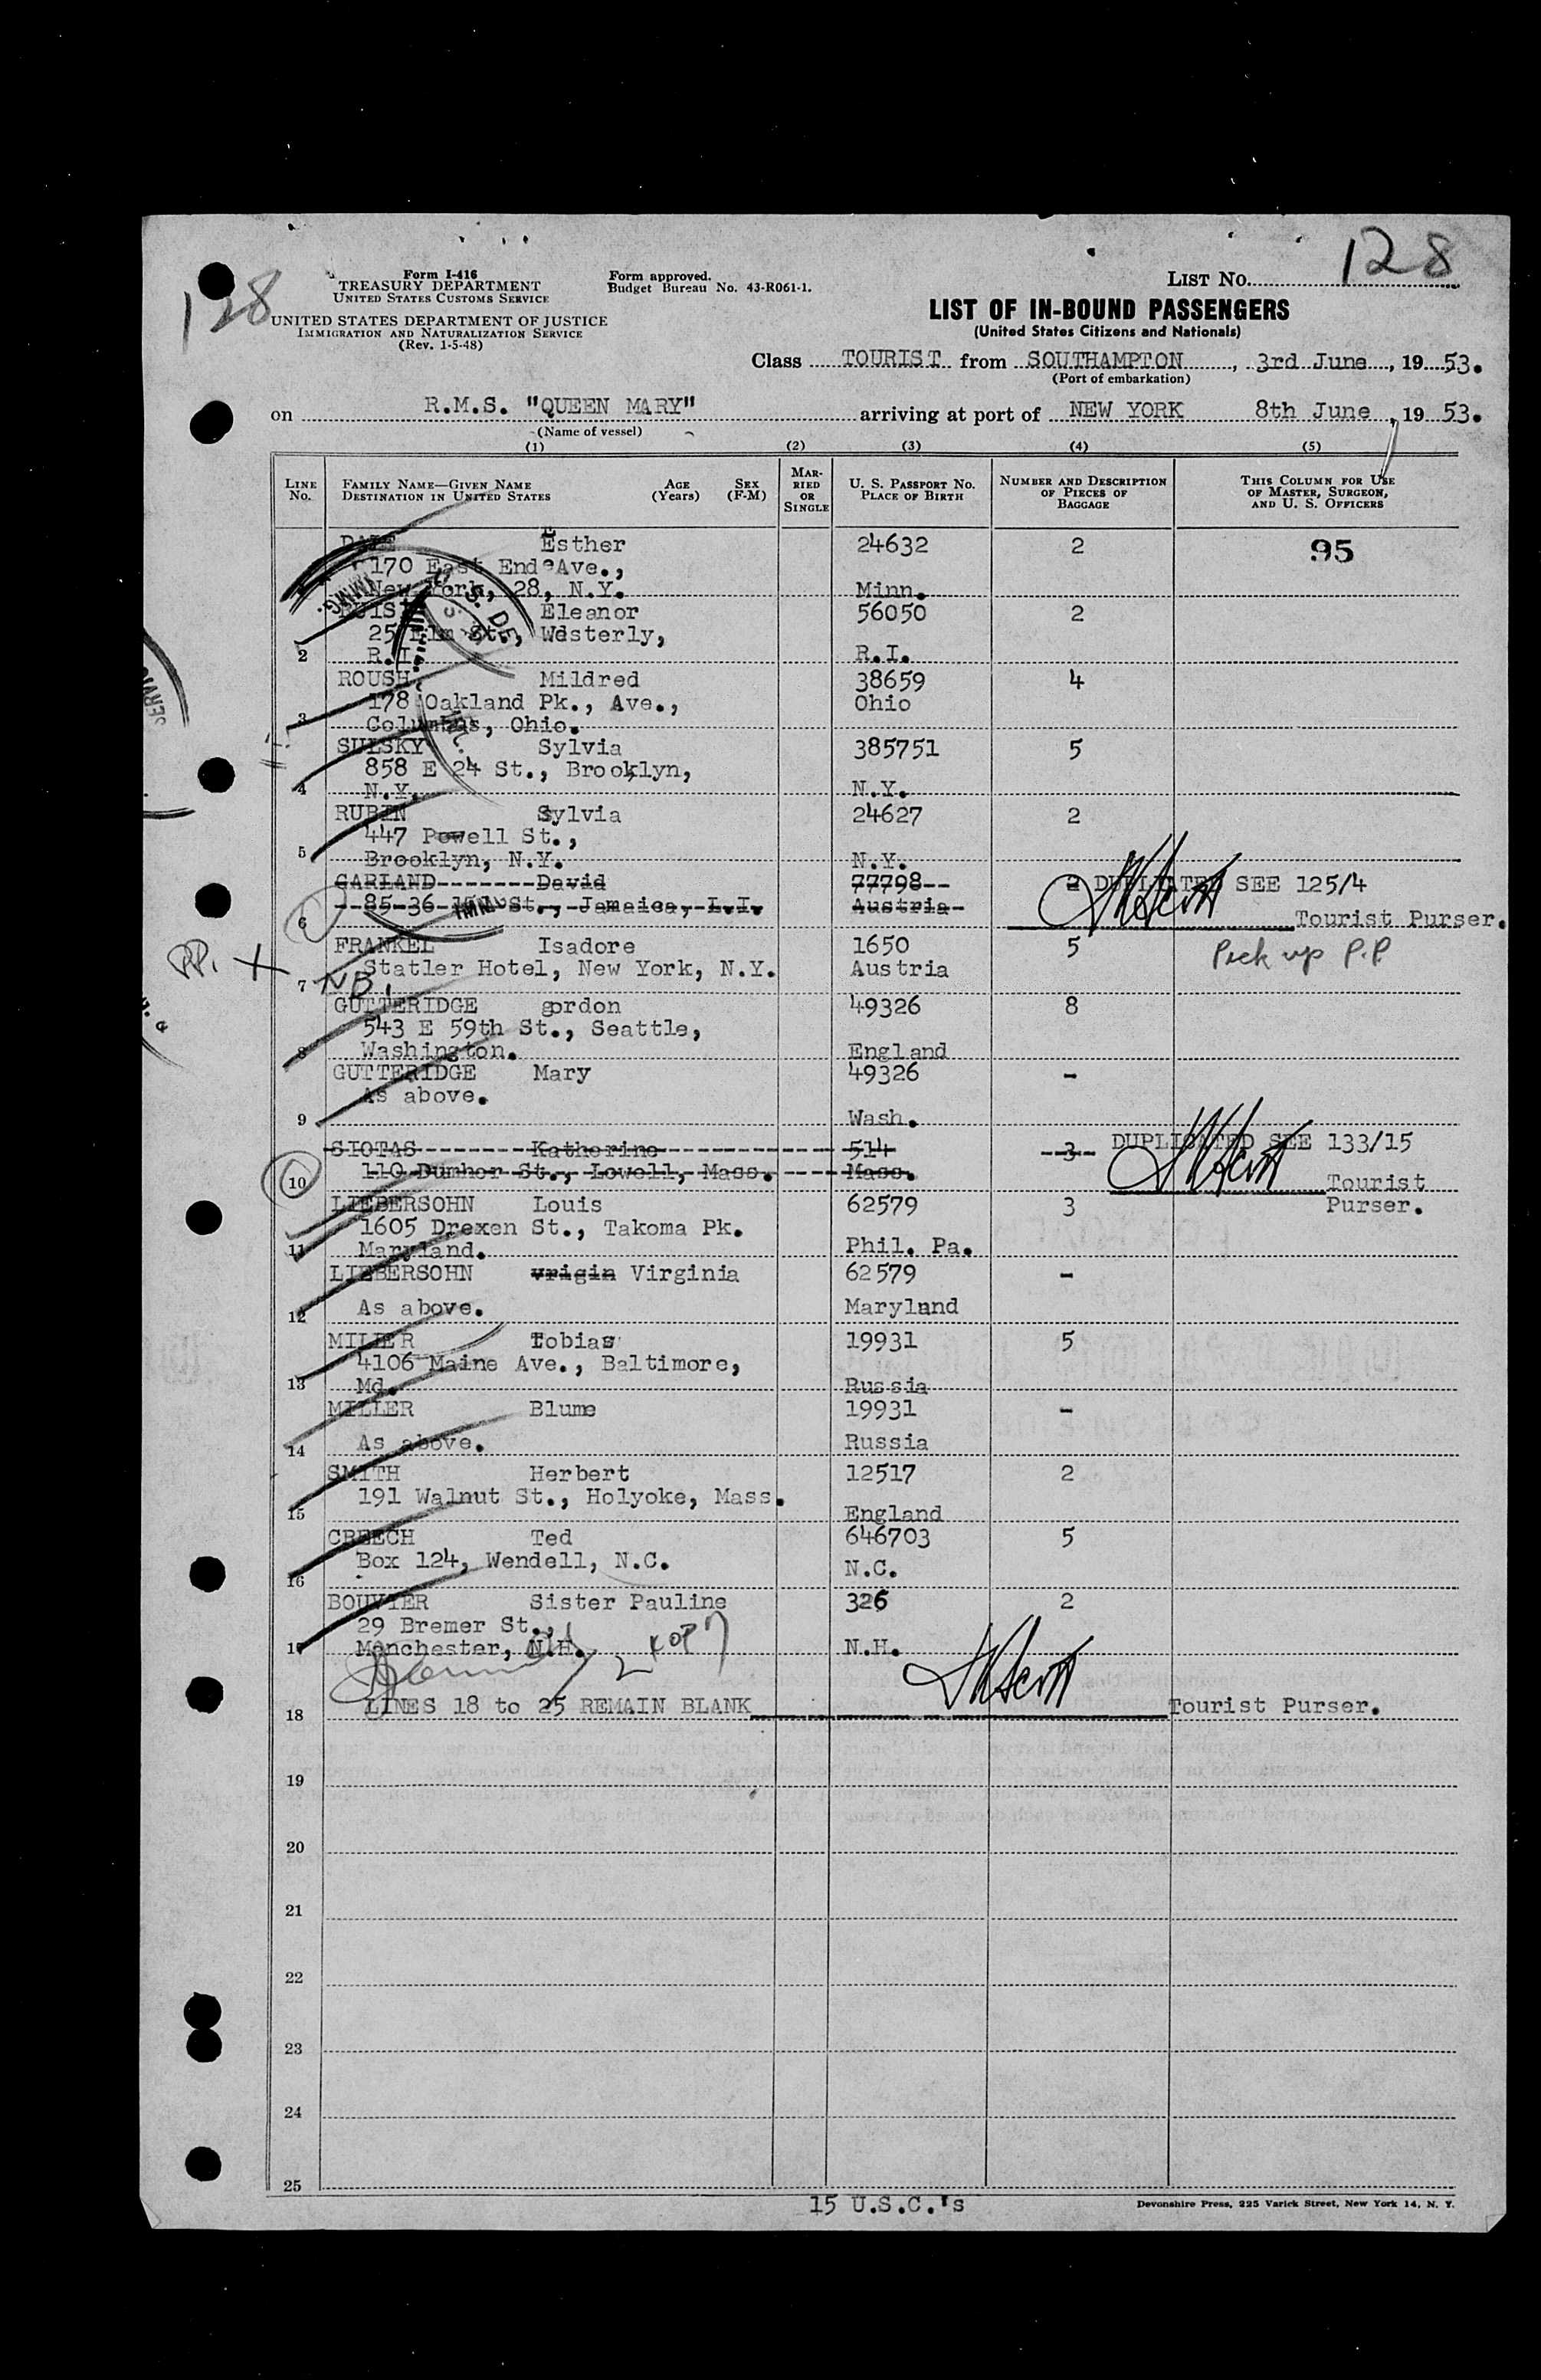 128
128
Form I-416
TREASURY DEPARTMENT
UNITED STATES CUSTOMS SERVICE
UNITED STATES DEPARTMENT OF JUSTICE
IMMIGRATION AND NATURALIZATION SERVICE
(Rev. 1-5-48)
Form approved.
Budget Bureau No. 43-R061-1.
LIST No.
LIST OF IN-BOUND PASSENGERS
(United States Citizens and Nationals)
Class TOURIST from SOUTHAMPTON, 3rd June, 1953.
(Port of embarkation)
on R.M.S. "QUEEN MARY" arriving at port of NEW YORK 8th June, 1953.
(Name of vessel)
(1) (2) (3) (4) (5)
LINE No. FAMILY NAME—GIVEN NAME DESTINATION IN UNITED STATES AGE (Years) SEX (F-M) MARRIED OR SINGLE U. S. PASSPORT No. PLACE OF BIRTH NUMBER AND DESCRIPTION OF PIECES OF BAGGAGE THIS COLUMN FOR USE OF MASTER, SURGEON, AND U. S. OFFICERS
Esther 24632 2 95
170 East End Ave.,
New York, 28, N.Y. Minn.
Eleanor 56050 2
25 Elm St., Westerly,
2 R.I. R.I.
ROUSH Mildred 38659 4
178 Oakland Pk., Ave., Ohio
3 Columbus, Ohio.
SULSKY Sylvia 385751 5
858 E 24 St., Brooklyn,
4 N.Y. N.Y.
RUBIN Sylvia 24627 2
447 Powell St.,
5 Brooklyn, N.Y. N.Y.
GARLAND-------David 77798-- 2 DUPLICATED SEE 125/4
85-36 St., Jamaica, L.I. Austria-
6 Tourist Purser.
FRANKEL Isadore 1650 5 Pick up P.P
PP. X Statler Hotel, New York, N.Y. Austria
7 NB.
GUTTERIDGE gordon 49326 8
543 E 59th St., Seattle,
8 Washington. England
GUTTERIDGE Mary 49326 -
As above.
9 Wash.
SIOTAS Katherine 514 --3-- DUPLICATED SEE 133/15
10 110 Dumher St., Lowell, Mass. Mass. Tourist
LIEBERSOHN Louis 62579 3 Purser.
1605 Drexen St., Takoma Pk.
11 Maryland. Phil. Pa.
LIEBERSOHN vrigin Virginia 62579 -
12 As above. Maryland
MILLER Tobias 19931 5
4106 Maine Ave., Baltimore,
13 Md. Russia
MILLER Blume 19931 -
14 As above. Russia
SMITH Herbert 12517 2
191 Walnut St., Holyoke, Mass.
15 England
CREECH Ted 646703 5
Box 124, Wendell, N.C. N.C.
16
BOUVIER Sister Pauline 326 2
29 Bremer St.,
17 Manchester, N.H. N.H.
18 LINES 18 to 25 REMAIN BLANK Tourist Purser.
19
20
21
22
23
24
25
15 U.S.C.'s
Devonshire Press, 225 Varick Street, New York 14, N. Y.